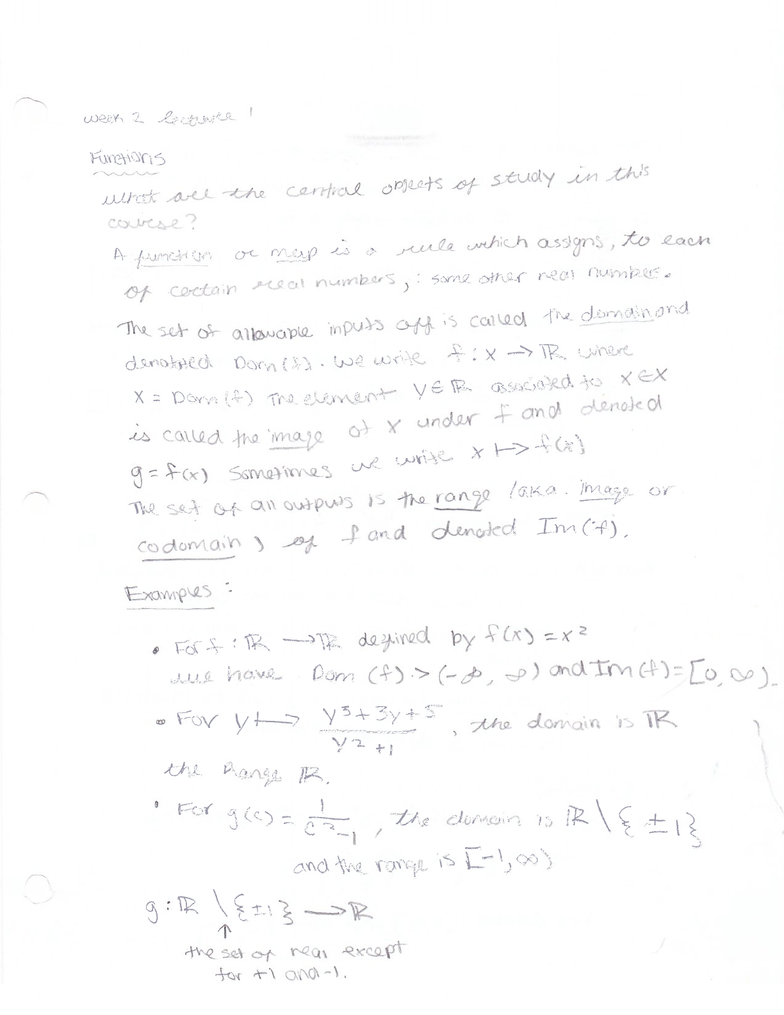 week 2 lecture 1
Functions
what are the central objects of study in this
course?
A function or map is a rule which assigns, to each
of certain real numbers, : some other real number.
The set of allowable inputs off is called the domain and
denoted Dom (f). We write f : x → ℝ where
X = Dom (f) The element y ∈ ℝ associated to x ∈ X
is called the image of x under f and denoted
y = f(x) Sometimes we write x ↦ f(x)
The set of all outputs is the range (aka. image or
codomain) of f and denoted Im (f).
Examples :
• For f : ℝ → ℝ defined by f(x) = x²
we have Dom (f) = (-∞, ∞) and Im (f) = [0, ∞).
• For y ↦ y⁵+3y+5 / y²+1 , the domain is ℝ
the Range ℝ.
• For g(c) = 1 / c²-1 , the domain is ℝ \ { ±1}
and the range is [-1, ∞)
g : ℝ \ {±1} → ℝ
↑
the set of real except
for +1 and -1.